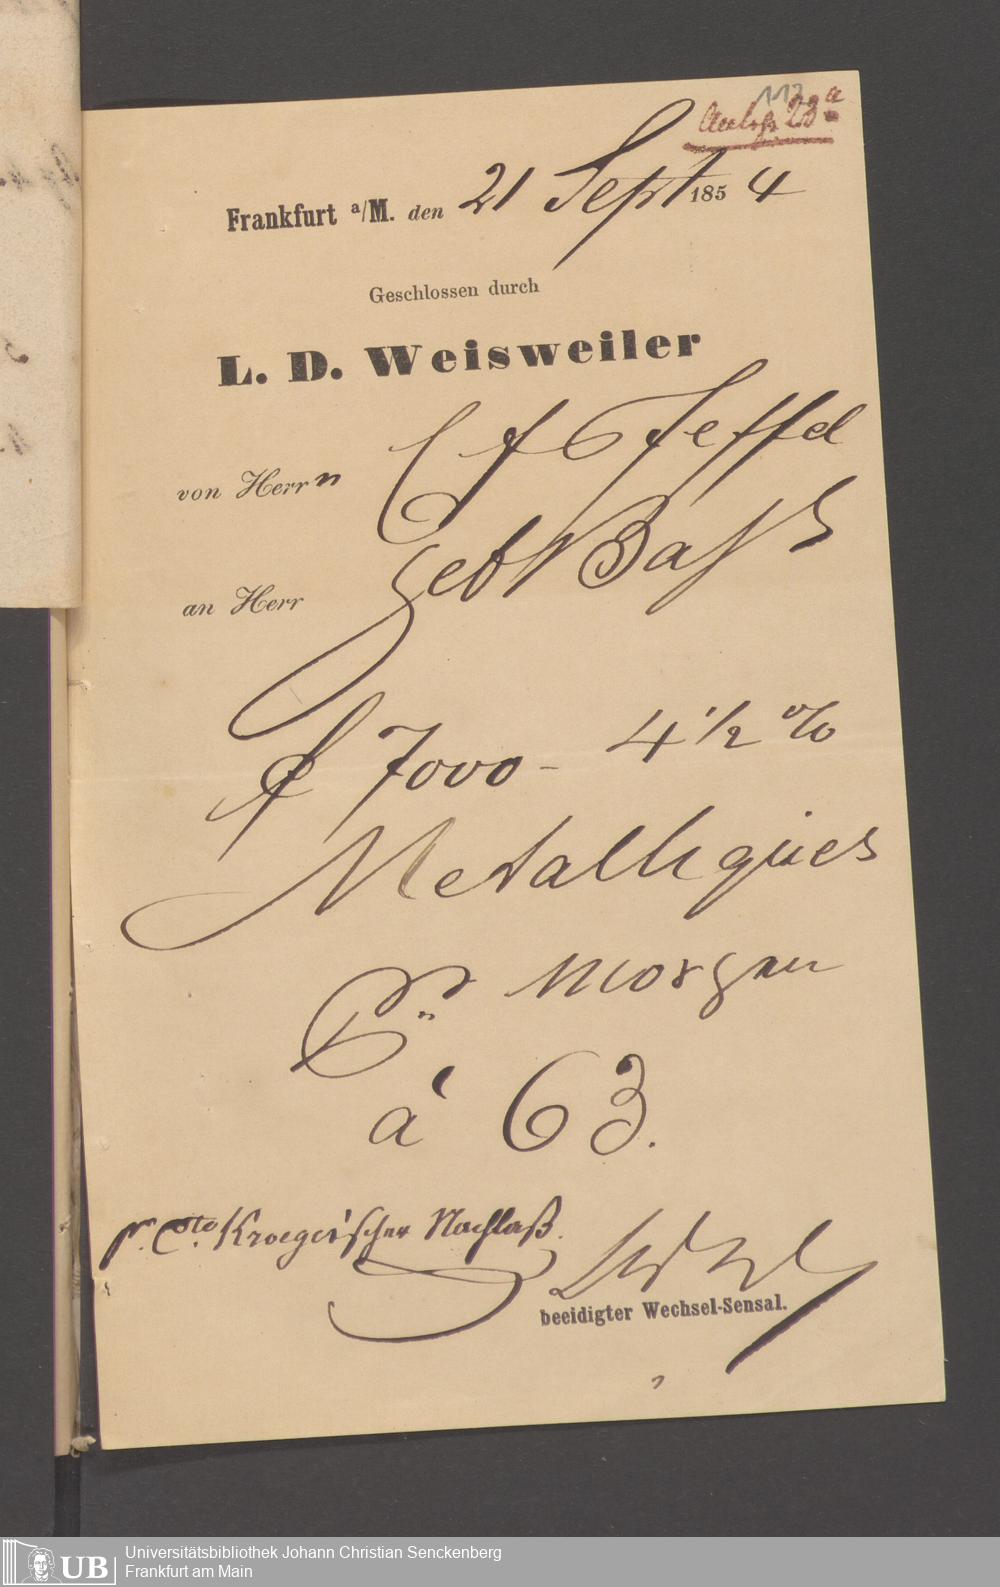 117
Anlage 23a
Frankfurt a/M. den 21 Sept 1854
Geschlossen durch
L. D. Weisweiler
von Herrn
an Herr Gebr Bass
f 7000 - 4 1/2 %
Metalliques
Pr. morgen
à 63.
pr. Cto. Kroeger'scher Nachlaß.
beeidigter Wechsel-Sensal.
UB
Universitätsbibliothek Johann Christian Senckenberg
Frankfurt am Main